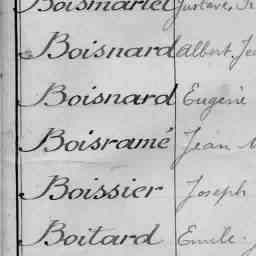 Boismartel Gustave,
Boisnard Albert, Je
Boisnard Eugène
Boisramé Jean
Boissier Joseph
Boitard Emile.